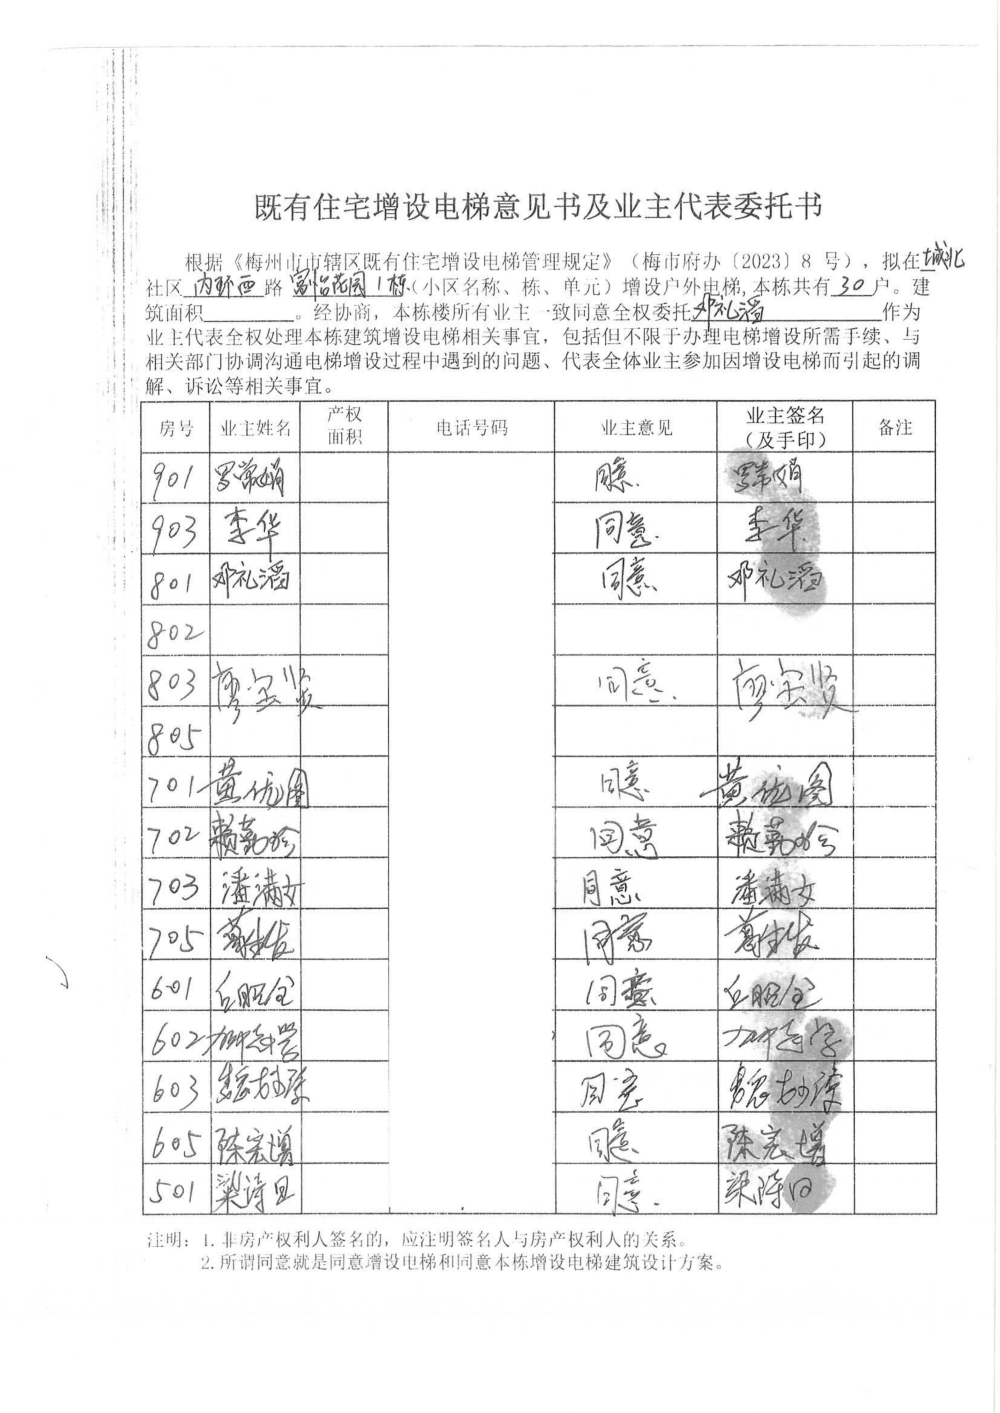 既有住宅增设电梯意见书及业主代表委托书
根据《梅州市市辖区既有住宅增设电梯管理规定》（梅市府办〔2023〕8 号），拟在 城北
社区 内环西 路 富怡花园1栋 (小区名称、栋、单元）增设户外电梯,本栋共有 30 户。建
筑面积________。经协商，本栋楼所有业主一致同意全权委托 邓礼滔 作为
业主代表全权处理本栋建筑增设电梯相关事宜，包括但不限于办理电梯增设所需手续、与
相关部门协调沟通电梯增设过程中遇到的问题、代表全体业主参加因增设电梯而引起的调
解、诉讼等相关事宜。
房号 业主姓名 产权面积 电话号码 业主意见 业主签名（及手印） 备注
901 罗常娟 同意. 罗常娟
903 李华 同意. 李华
801 邓礼滔 同意 邓礼滔
802
803 廖宝贤 同意. 廖宝贤
805
701 黄优图 同意 黄优图
702 赖勤珍 同意 赖勤珍
703 潘满女 同意 潘满女
705 同意
601 同意
602 同意
603 同意
605 陈宏增 同意 陈宏增
501 同意.
注明：1. 非房产权利人签名的，应注明签名人与房产权利人的关系。
2. 所谓同意就是同意增设电梯和同意本栋增设电梯建筑设计方案。